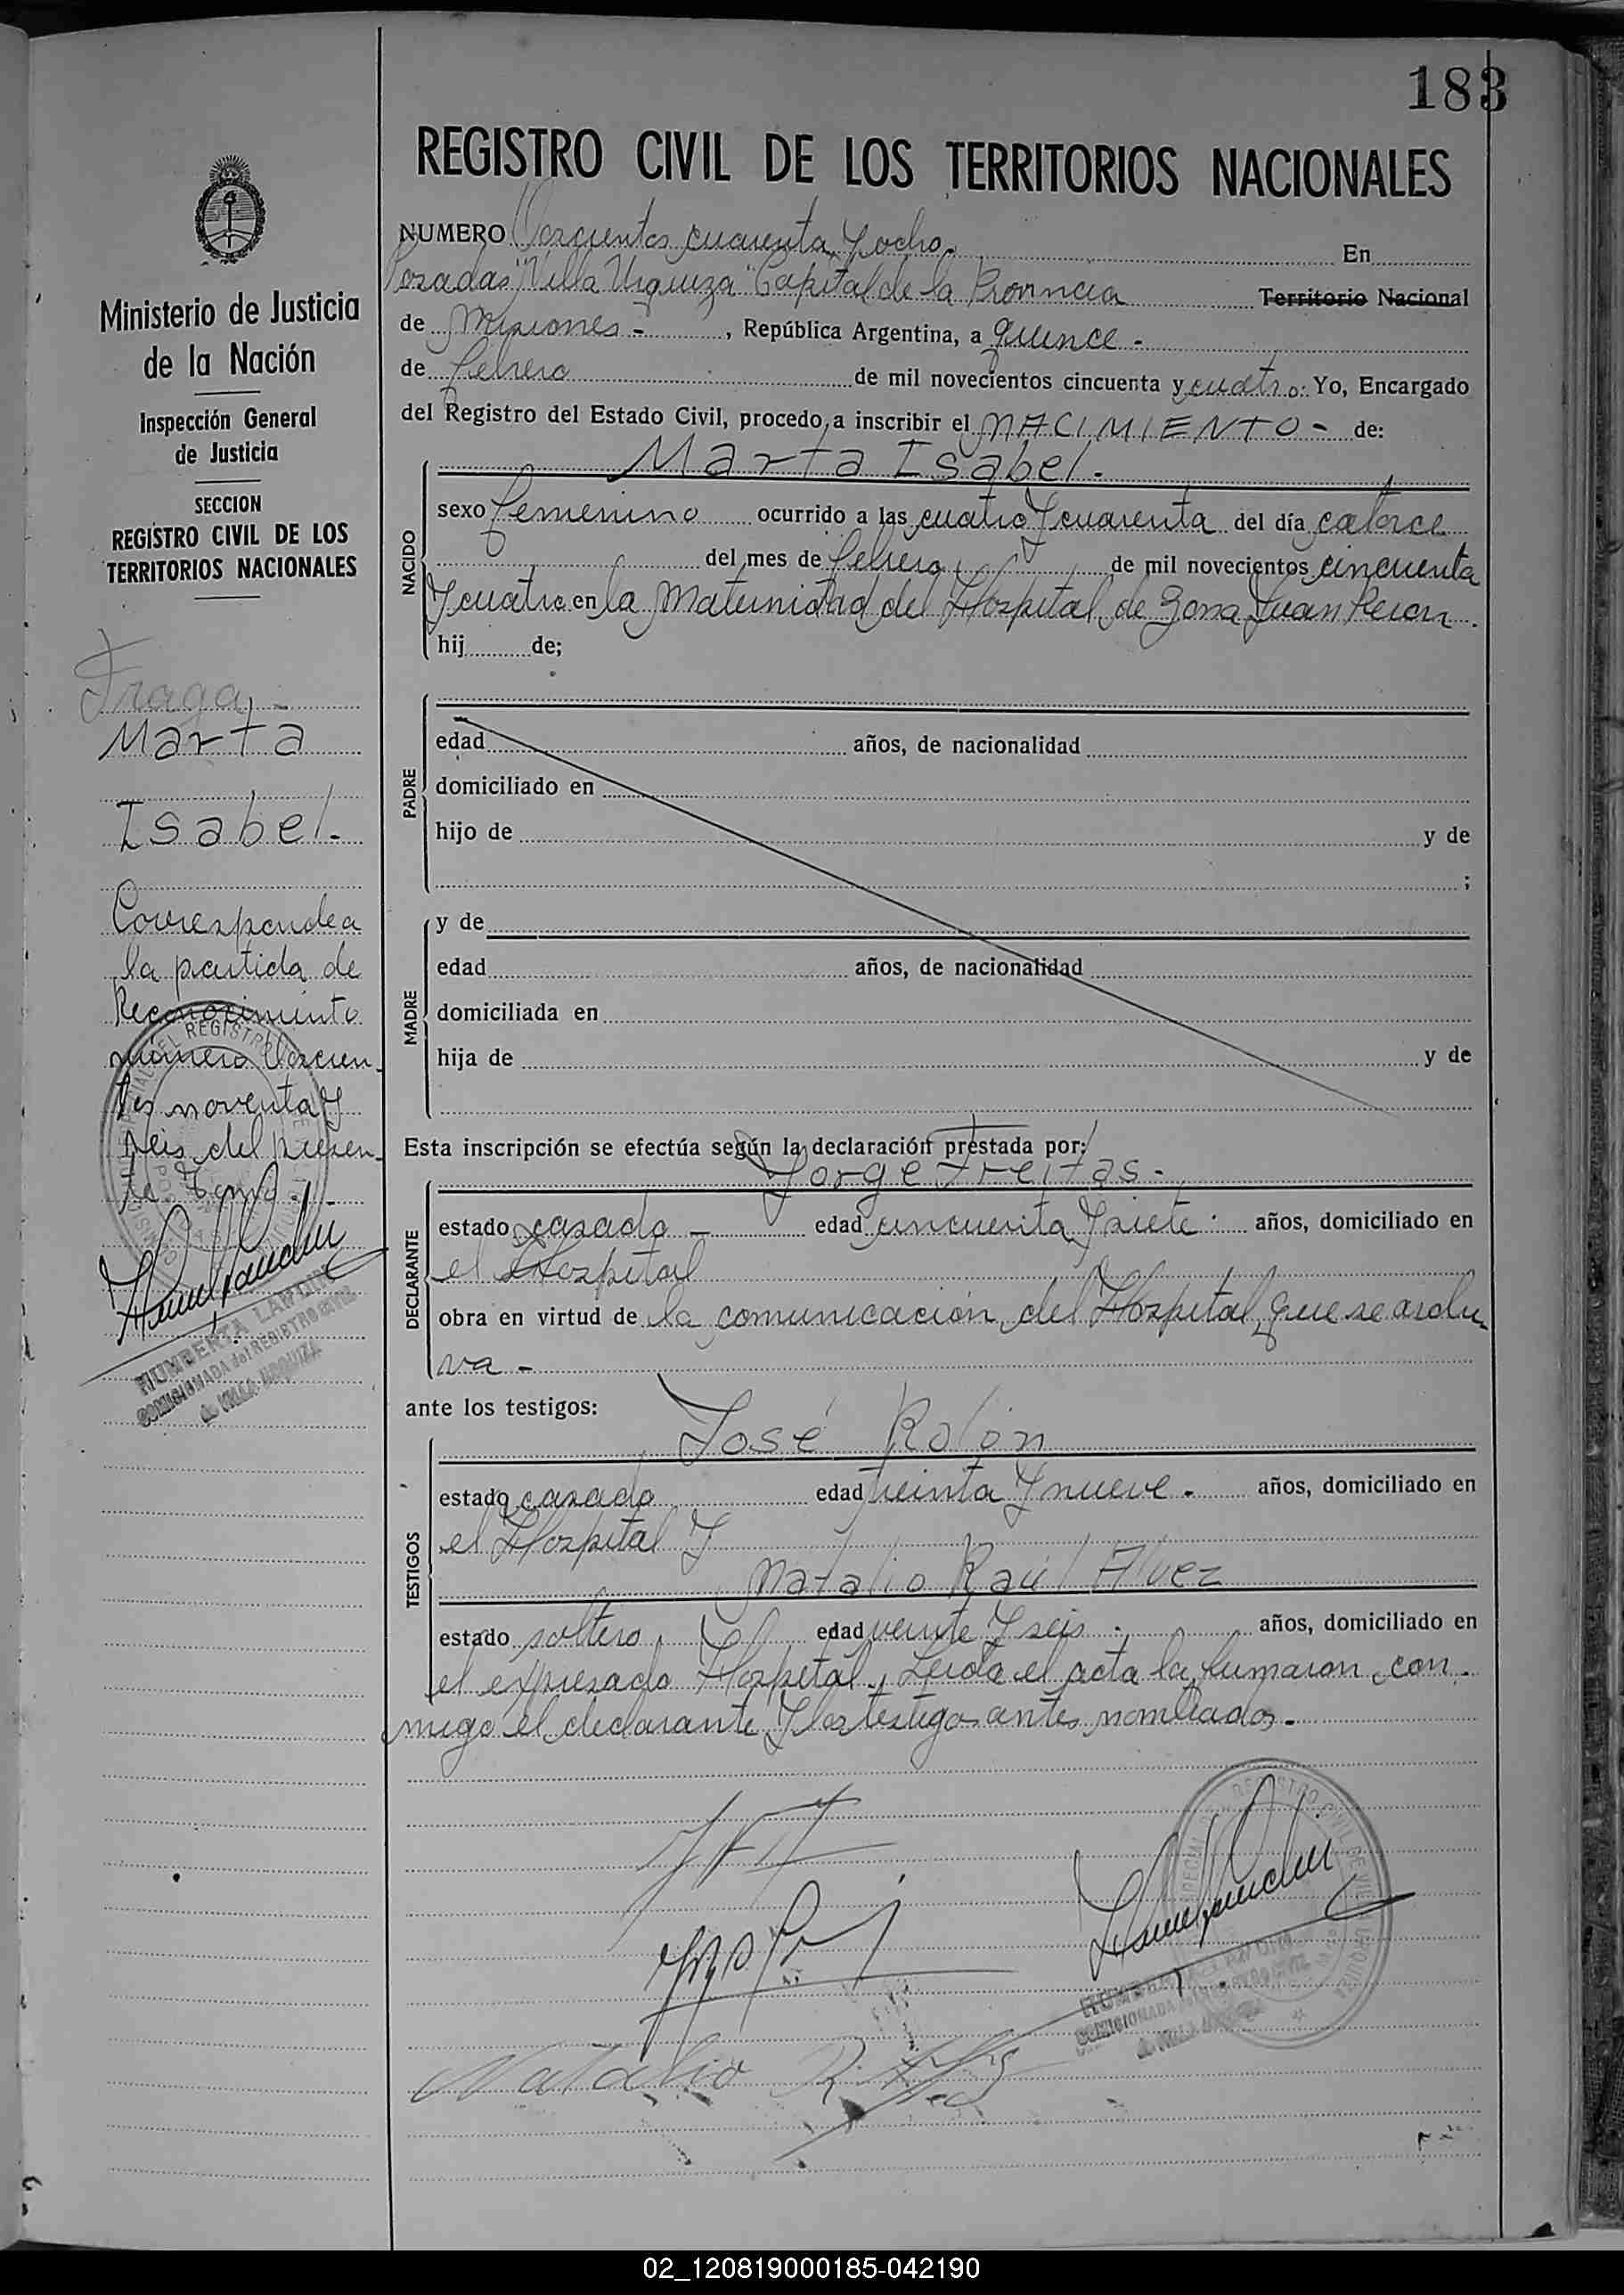 183
REGISTRO CIVIL DE LOS TERRITORIOS NACIONALES
Ministerio de Justicia
de la Nación
Inspección General
de Justicia
SECCION
REGISTRO CIVIL DE LOS
TERRITORIOS NACIONALES
Fraga -
Marta
Isabel.-
Corresponde a
la partida de
Reconocimiento
número Doscien-
tos noventa y
seis del presen-
te Tomo.
COMISIONADA del REGISTRO CIVIL
de VILLA URQUIZA
NUMERO Doscientos cuarenta y ocho.- En
Posadas "Villa Urquiza" Capital de la Provincia Territorio Nacional
de Misiones - , República Argentina, a quince -
de febrero de mil novecientos cincuenta y cuatro. Yo, Encargado
del Registro del Estado Civil, procedo a inscribir el NACIMIENTO - de:
NACIDO
Marta Isabel.-
sexo femenino ocurrido a las cuatro y cuarenta del día catorce
del mes de febrero de mil novecientos cincuenta
y cuatro en la Maternidad del Hospital de Zona Juan Peron.
hij de;
PADRE
edad años, de nacionalidad
domiciliado en
hijo de y de
;
MADRE
y de
edad años, de nacionalidad
domiciliada en
hija de y de
Esta inscripción se efectúa según la declaración prestada por:
DECLARANTE
Jorge Freitas.-
estado casado - edad cincuenta y siete. años, domiciliado en
el Hospital
obra en virtud de la comunicación del Hospital que se archi-
va -
ante los testigos:
TESTIGOS
José Rolón
estado casado edad treinta y nueve. años, domiciliado en
el Hospital y
Natalio Raúl Alvez
estado soltero, edad veinte y seis. años, domiciliado en
el expresado Hospital. Leida el acta la firmaron con-
migo el declarante y los testigos antes nombrados.-
Natalio R.
COMISIONADA del REGISTRO CIVIL
02_120819000185-042190